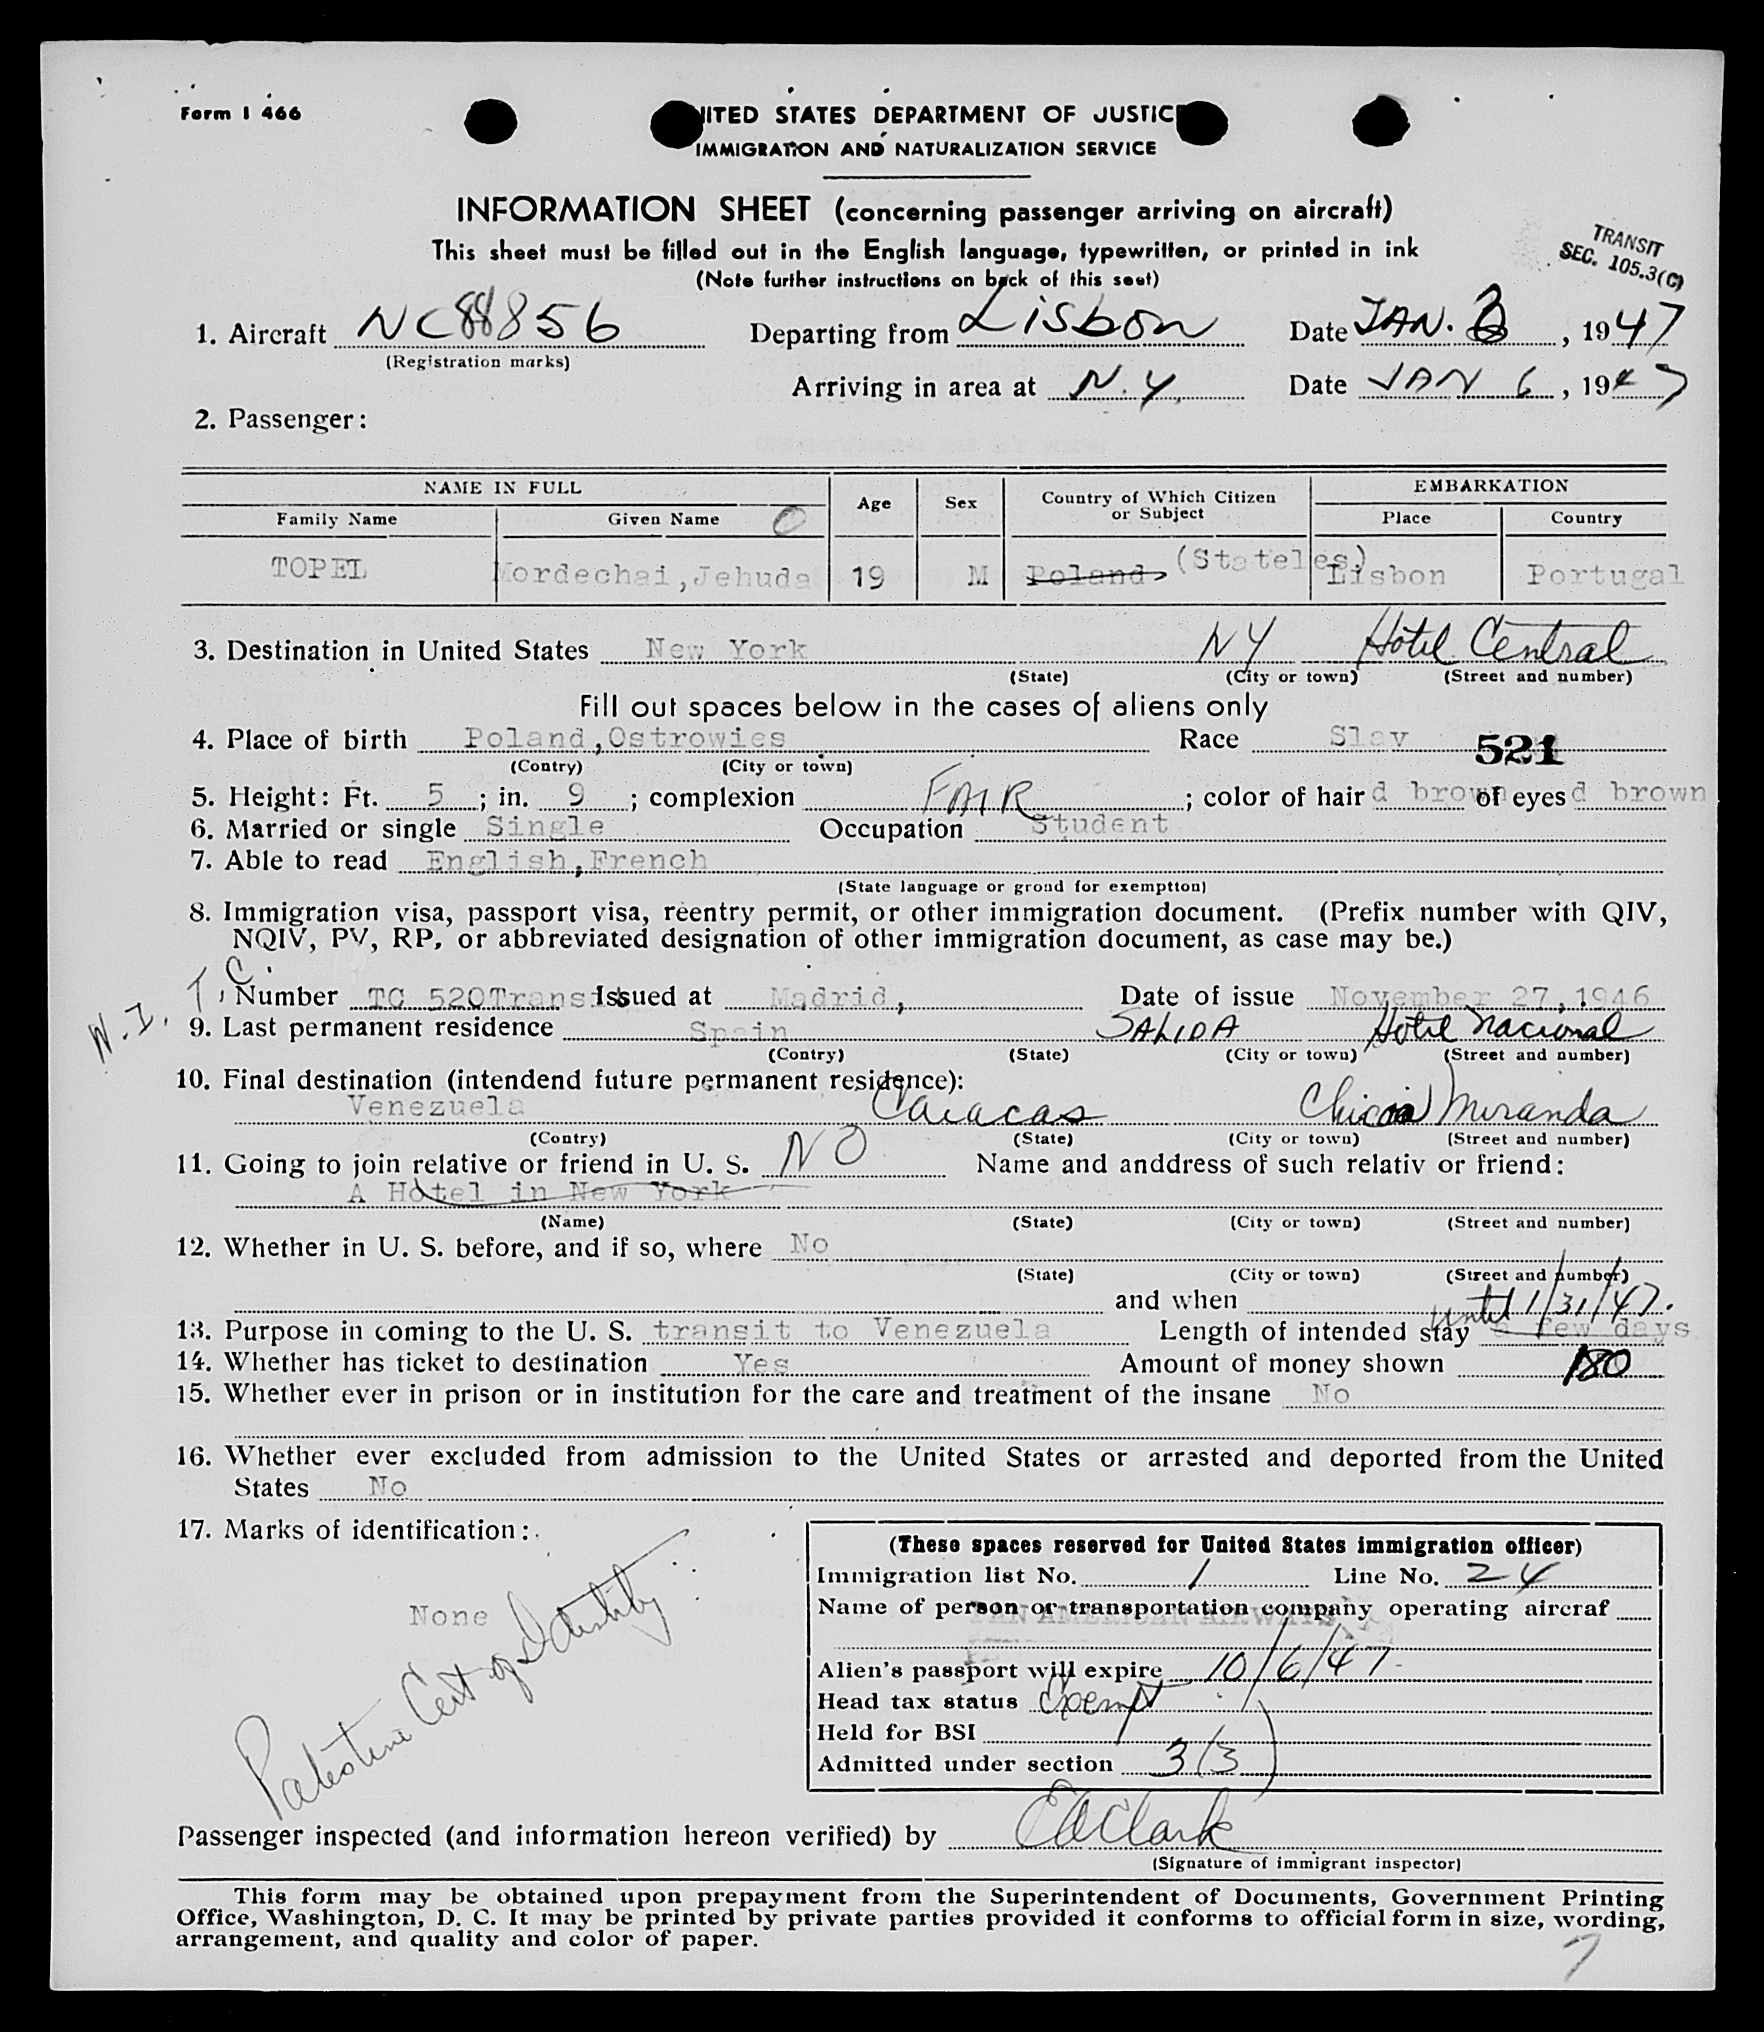 Form I 466
UNITED STATES DEPARTMENT OF JUSTICE
IMMIGRATION AND NATURALIZATION SERVICE
INFORMATION SHEET (concerning passenger arriving on aircraft)
This sheet must be filled out in the English language, typewritten, or printed in ink
(Note further instructions on back of this seet)
TRANSIT
SEC. 105.3(C)
1. Aircraft NC88856 Departing from Lisbon Date JAN. , 1947
(Registration marks)
Arriving in area at N.Y. Date JAN 6, 1947
2. Passenger:
NAME IN FULL Age Sex Country of Which Citizen or Subject EMBARKATION
Family Name Given Name Place Country
TOPEL Mordechai,Jehuda 19 M Poland (Stateles) Lisbon Portugal
3. Destination in United States New York NY Hotel Central
(State) (City or town) (Street and number)
Fill out spaces below in the cases of aliens only
4. Place of birth Poland,Ostrowies Race Slav 521
(Contry) (City or town)
5. Height: Ft. 5; in. 9; complexion FAIR; color of hair d brown of eyes d brown
6. Married or single Single Occupation Student
7. Able to read English,French
(State language or groud for exemption)
8. Immigration visa, passport visa, reentry permit, or other immigration document. (Prefix number with QIV,
NQIV, PV, RP, or abbreviated designation of other immigration document, as case may be.)
N.I. T.C.
Number TC 520Transit Issued at Madrid, Date of issue November 27,1946
9. Last permanent residence Spain SALIDA Hotel Nacional
(Contry) (State) (City or town) (Street and number)
10. Final destination (intendend future permanent residence):
Venezuela Caracas Miranda
(Contry) (State) (City or town) (Street and number)
11. Going to join relative or friend in U. S. NO Name and anddress of such relativ or friend:
A Hotel in New York
(Name) (State) (City or town) (Street and number)
12. Whether in U. S. before, and if so, where No
(State) (City or town) (Street and number)
and when
until 1/31/47.
13. Purpose in coming to the U. S. transit to Venezuela Length of intended stay a few days
14. Whether has ticket to destination Yes Amount of money shown 180
15. Whether ever in prison or in institution for the care and treatment of the insane No
16. Whether ever excluded from admission to the United States or arrested and deported from the United
States No
17. Marks of identification:
None
Palestine Cert of Identity
(These spaces reserved for United States immigration officer)
Immigration list No. 1 Line No. 24
Name of person or transportation company operating aircraf
PAN AMERICAN AIRWAYS
Alien's passport will expire 10/6/47
Head tax status Exempt
Held for BSI
Admitted under section 3(3)
Passenger inspected (and information hereon verified) by EAClark
(Signature of immigrant inspector)
This form may be obtained upon prepayment from the Superintendent of Documents, Government Printing
Office, Washington, D. C. It may be printed by private parties provided it conforms to official form in size, wording,
arrangement, and quality and color of paper.
7